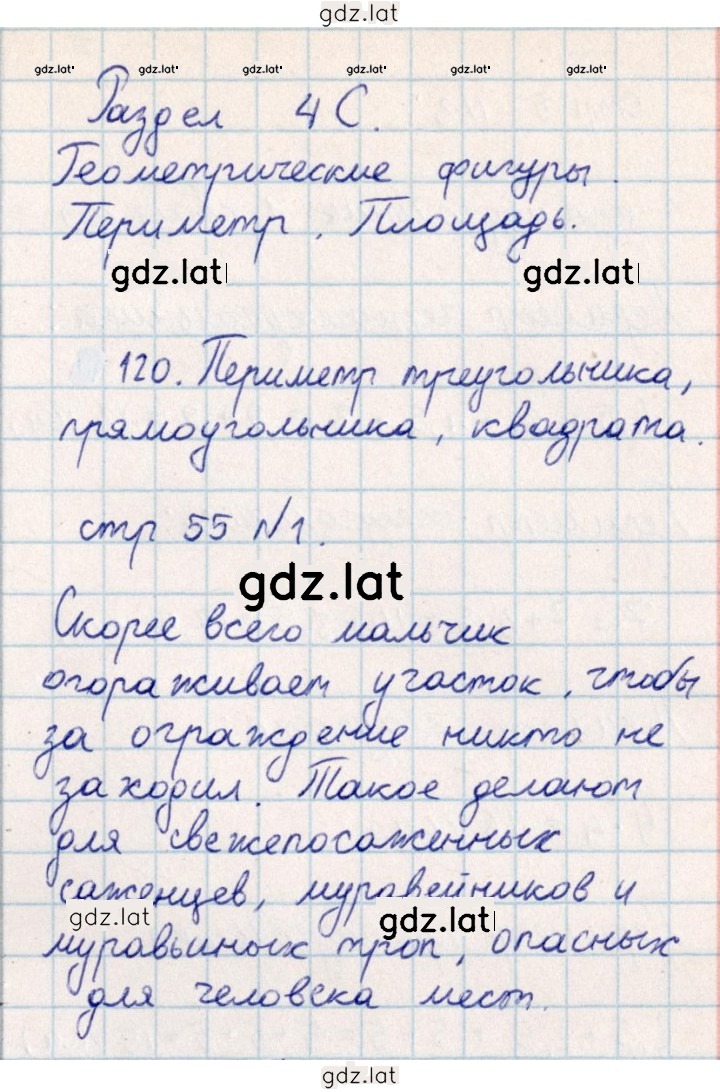 gdz.lat
gdz.lat gdz.lat gdz.lat gdz.lat gdz.lat gdz.lat
Раздел 4 С.
Геометрические фигуры.
Периметр. Площадь.
gdz.lat gdz.lat
120. Периметр треугольника,
прямоугольника, квадрата.
стр 55 №1.
gdz.lat
Скорее всего мальчик
огораживает участок, чтобы
за ограждение никто не
заходил. Такое делают
для свежепосаженных
саженцев, муравейников и
gdz.lat gdz.lat
муравьиных троп, опасных
для человека мест.
gdz.lat